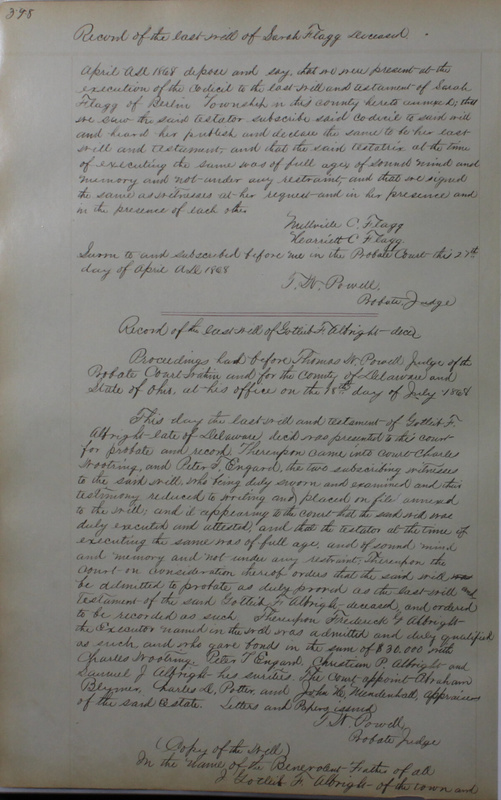 398
Record of the last will of Sarah Flagg deceased.
April AD 1868 depose and say, that we were present at the
execution of the Codicil to the last will and testament of Sarah
Flagg of Berlin Township in this county hereto annexed; that
we saw the said testator subscribe said Codicil to said will
and heard her publish and declare the same to be her last
will and testament, and that the said testatrix at the time
of executing the same was of full age, of sound mind and
memory and not under any restraint, and that we signed
the same as witnesses at her request and in her presence and
in the presence of each other
Millville C. Flagg
Harriett C Flagg
Sworn to and subscribed before me in the Probate Court this 27th
day of April AD 1868
T. W. Powell,
Probate Judge
Record of the last will of Gotleib F. Albright decd
Proceedings had before Thomas W. Powell, Judge of the
Probate Court within and for the county of Delaware and
State of Ohio, at his office on the 18th day of July 1868
This day the last will and testament of Gotleib F.
Albright late of Delaware, decd was presented to the court
for probate and record Thereupon came into Court Charles
Wootring, and Peter T. Engard, the two subscribing witnesses
to the said will, who being duly sworn and examined and their
testimony reduced to writing and placed on file annexed
to the will; and it appearing to the court that the said will was
duly executed and attested, and that the testator at the time of
executing the same was of full age, and of sound mind
and memory and not under any restraint; Thereupon the
court on consideration thereof orders that the said will
be admitted to probate as duly proved as the last will and
testament of the said Gotleib F. Albright deceased, and ordered
to be recorded as such Thereupon Frederick G Albright
the Executor named in the will was admitted and duly qualified
as such, and who gave bond in the sum of $30.000 with
Charles Wootring, Peter T Engard, Christian P. Albright and
Samuel J Albright his surities. The Court appoint Abraham
Blymer, Charles A. Potter and John H. Mendenhall, appraisers
of the said Estate. Letters and Papers issued
T W Powell
Probate Judge
(Copy of the Will)
In the Name of the Benevolent Father of all
I Gotleib F. Albright of the town and